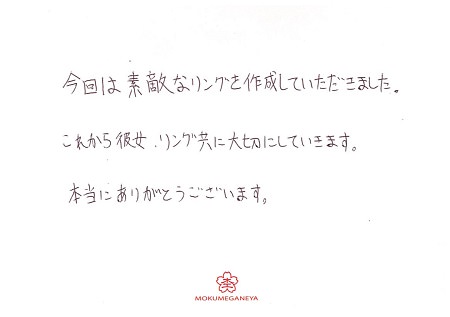 今回は素敵なリングを作成していただきました。
これから彼女、リング共に大切にしていきます。
本当にありがとうございます。
MOKUMEGANEYA